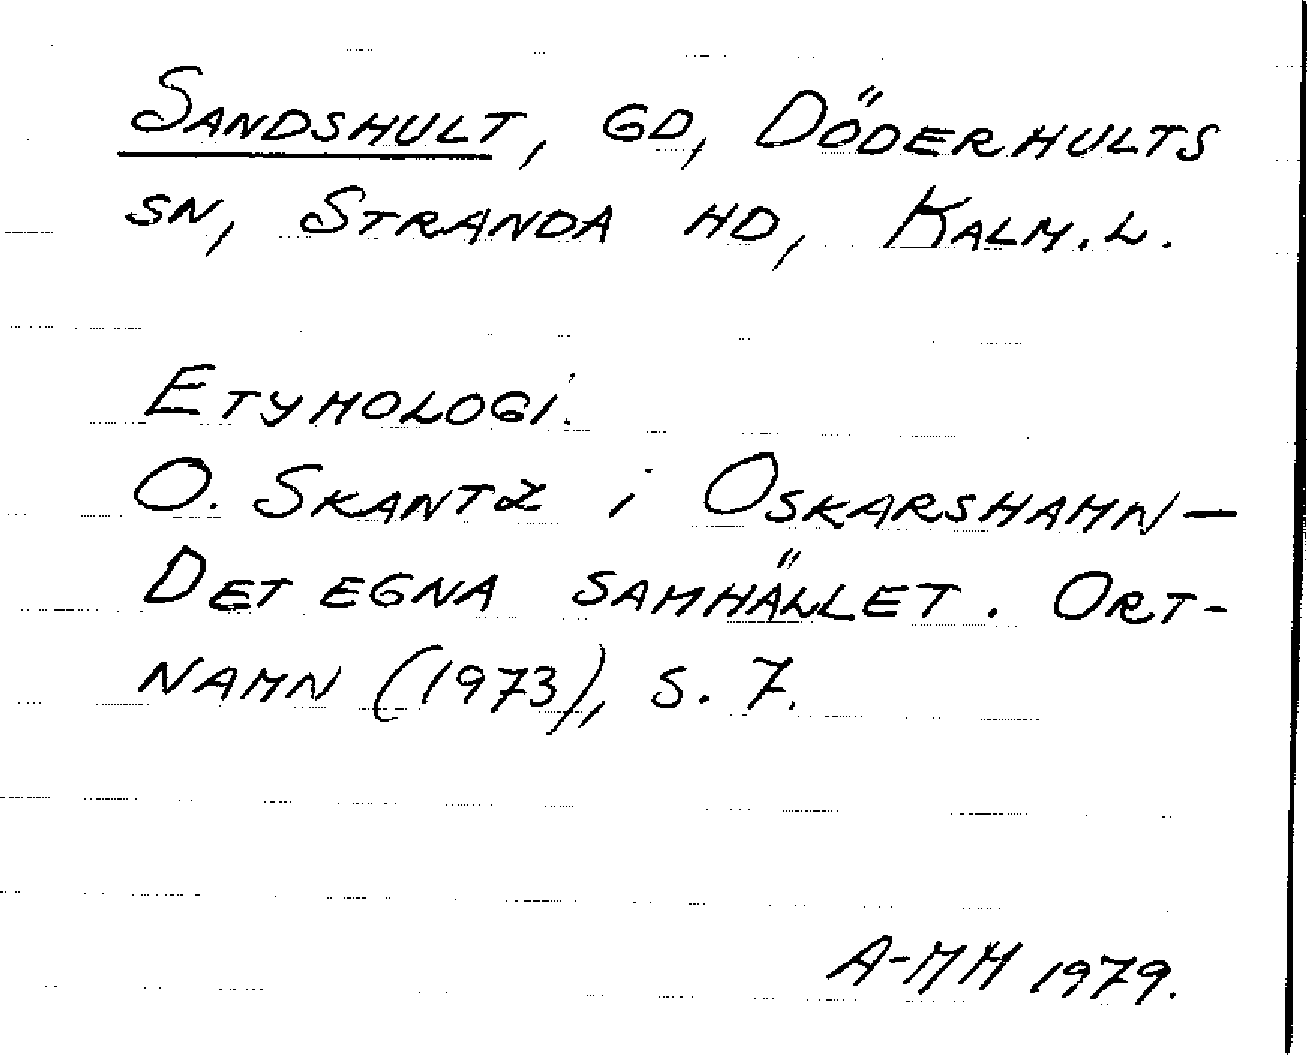 Sandshult, gd, Döderhults
sn, Stranda hd, Kalm.l.
Etymologi.
O. Skantz i Oskarshamn –
Det egna samhället. Ort-
namn (1973), s. 7.
A-MH 1979.